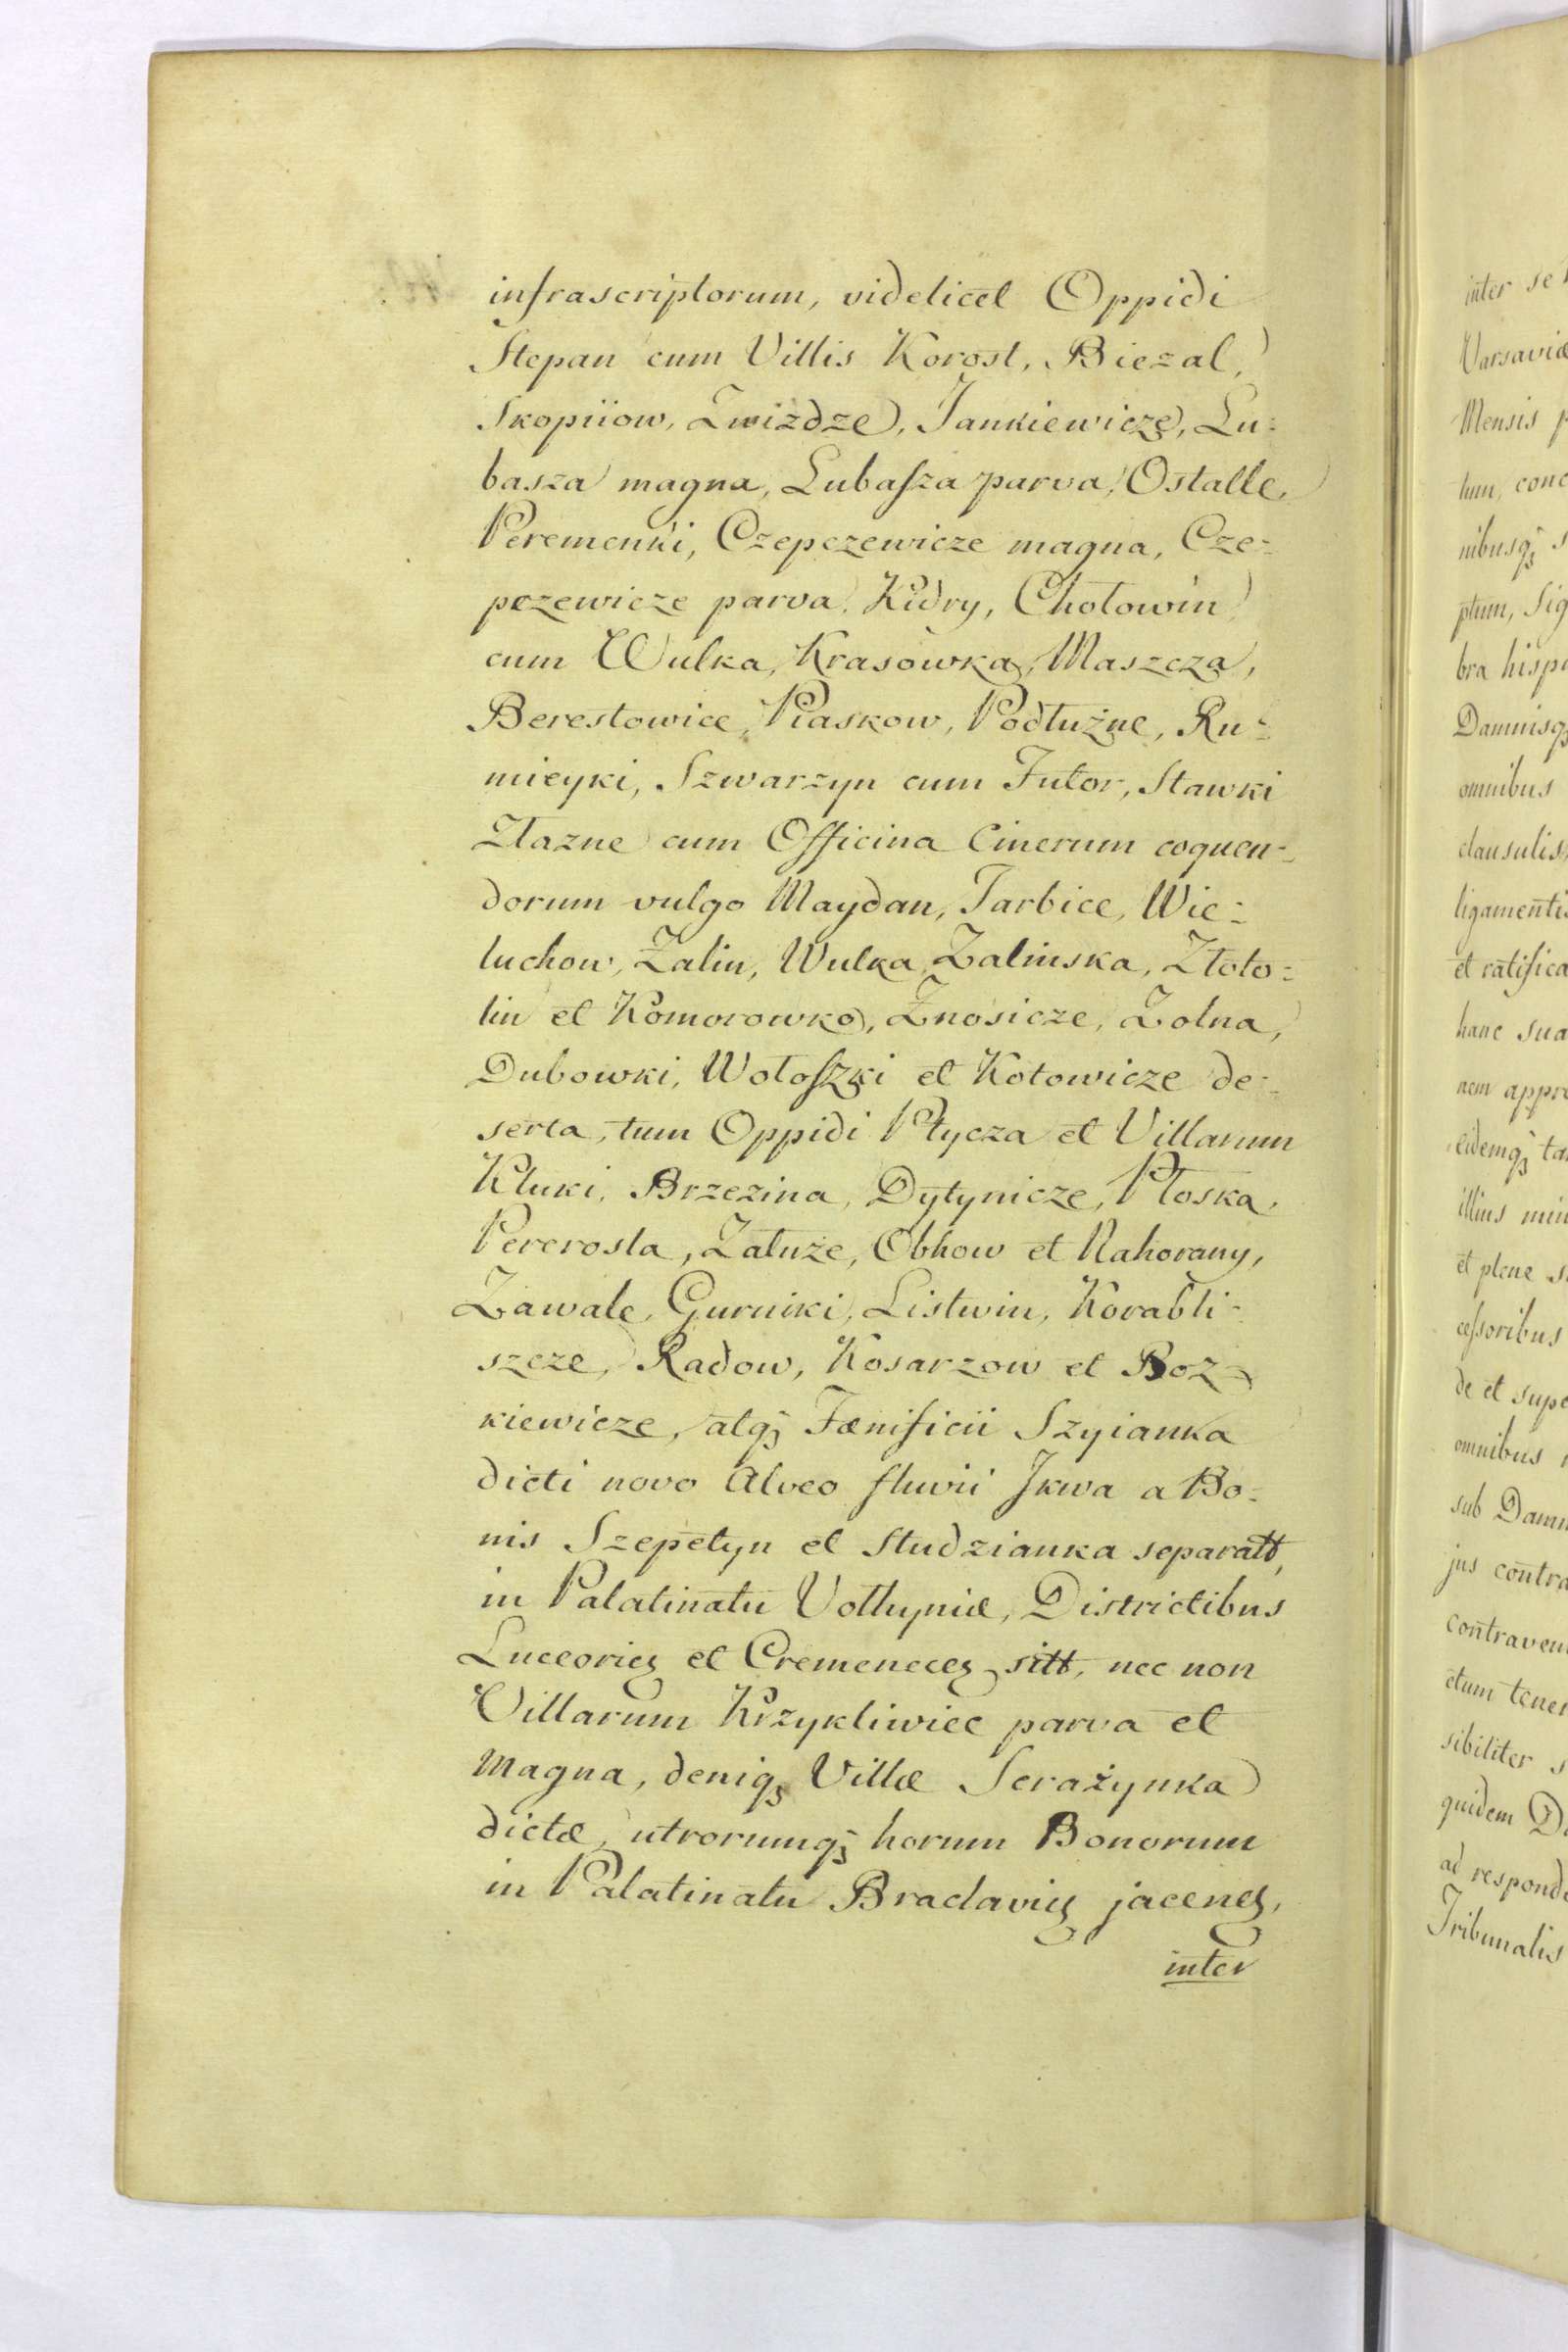 infrascriptorum, videlicet Oppidi
Stepan cum Villis Korost, Biezal,
Skopiiow, Zwizdze, Jankiewicze, Lu-
basza magna, Lubasza parva, Ostalle,
Peremenki, Czepczewicze magna, Cze-
pczewicze parva, Kidry, Chotowin
cum Wulka, Krasowka, Maszcza,
Berestowice, Piaskow, Podłużne, Ru-
mieyki, Szwarzyn cum Futor, Stawki
Złazne cum Officina Cinerum coquen-
dorum vulgo Maydan, Jarbice, Wie-
luchow, Zalin, Wulka Zalinska, Złoto-
lin et Komorowko, Znosicze, Zolna,
Dubowki, Wołoszki et Kotowicze de-
serta, tum Oppidi Ptycza et Villarum
Kluki, Brzezina, Dytynicze, Płoska,
Pererosla, Załuże, Obhow et Nahorany,
Zawale, Gurniki, Listwin, Korabli-
szcze, Radow, Kosarzow et Boz-
kiewicze, atq; Fænificii Szyianka
dicti novo Alveo fluvii Jkwa a Bo-
nis Szepetyn et Studzianka separatt,
in Palatinatu Volhyniæ, Districtibus
Luceorien et Cremenecen sitt, nec non
Villarum Krzykliwiec parva et
Magna, deniq; Villæ Serażynka
dictæ, utrorumq; horum Bonorum
in Palatinatu Braclavien jacen,
inter
inter se
Varsaviæ
Mensis p
tum, conc
nibusq; s
ptum, Sig
bra hispa
Damnisq;
omnibus
clausulis,
ligamentis
et ratifica
hanc sua
nem appro
eidemq; ta
illius min
et plene s
cessoribus
de et supe
omnibus
sub Damn
jus contra
contraven
ctum tener
sibiliter s
quidem D
ad responde
Tribunalis